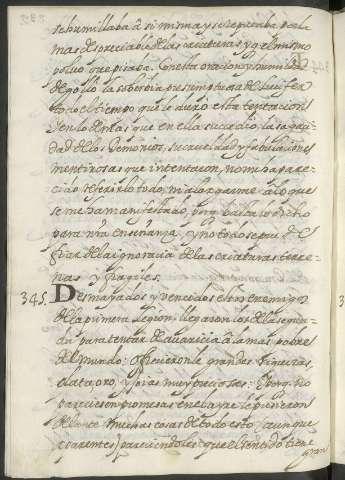 se humillaba a si misma y se reputaba por la
mas despreciable de las criaturas, y q el mismo
polvo que pisaba. Con esta oracion y humildad
degollo la soberbia presumptuosa de Lucifer
todo el tiempo que le duro esta tentacion:
y en lo demas que en ella sucedio, la sagaci-
dad de los Demonios, su crueldad y fabulaciones
mentirosas que intentaron, no me ha pare-
cido referirlo todo, ni alargarme a lo que
se me ha manifestado, porq basta lo dicho
para nra enseñanza, y no todo se puede
fiar de la ignorancia de las criaturas terre-
nas y fragiles.
345. Desmayados y vencidos estos enemigos
de la primera legion, llegaron los de la segun-
da para tentar de avaricia a la mas pobre
del mundo: Ofrecieronla grandes riquezas,
plata, oro, y joias muy preciosas: Y porq no
pareciesen promesas en el ayre le pusieron
delante muchas cosas de todo esto (aunque
aparentes) pareciendoles que el sentido tiene
gran